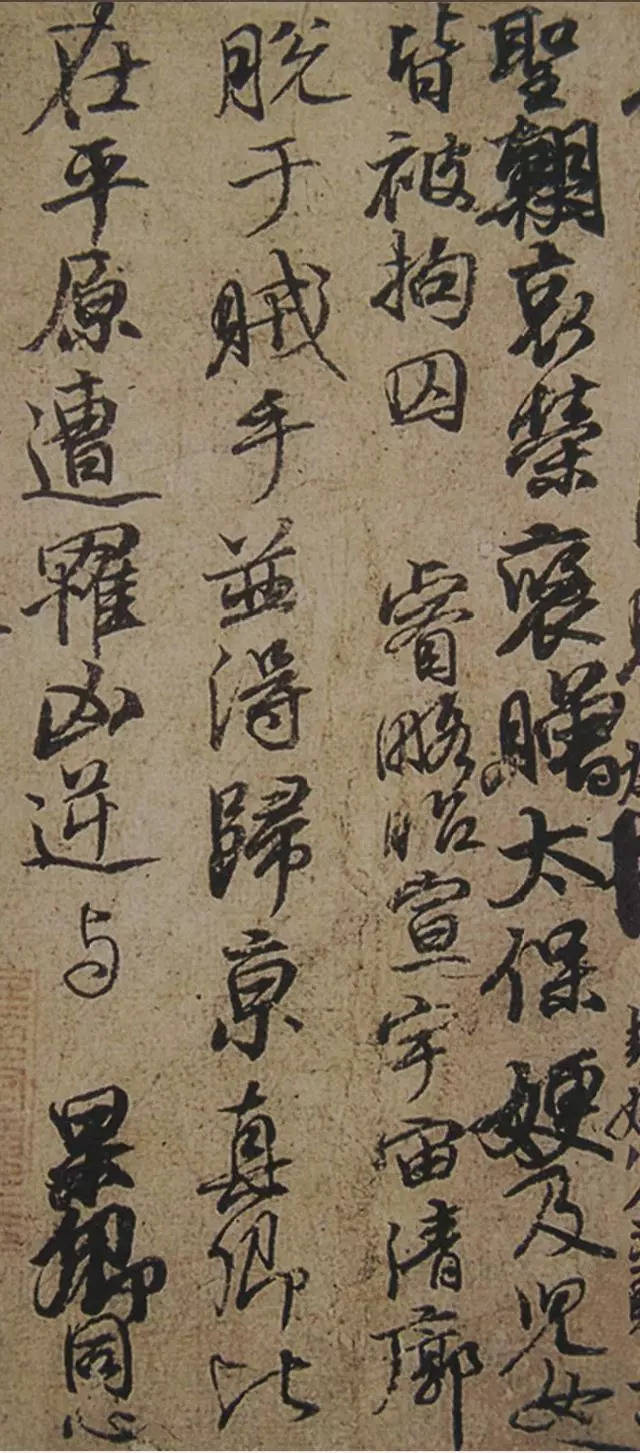 聖朝哀榮褒贈太保嫂及兒女
皆被拘囚 睿略昭宣宇宙清廓
脫于賊手並得歸京真卿比
在平原遭罹凶逆与 杲卿同心